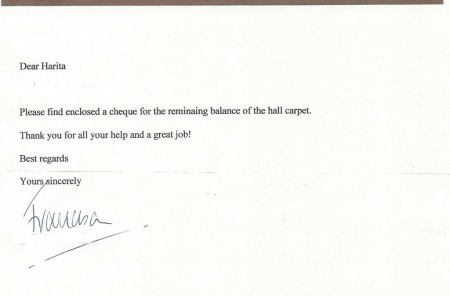 Dear Harita
Please find enclosed a cheque for the reminaing balance of the hall carpet.
Thank you for all your help and a great job!
Best regards
Yours sincerely